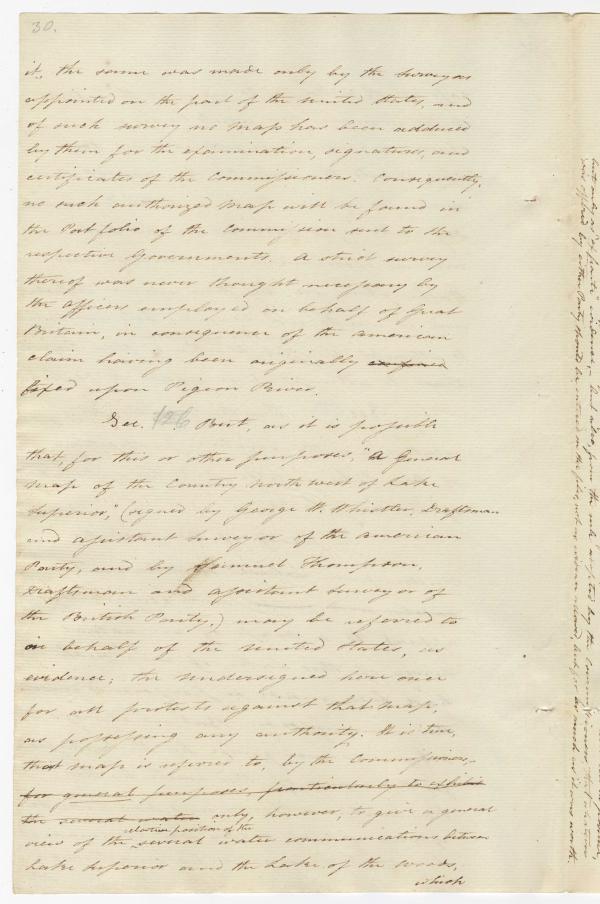 30.
it, the same was made only by the surveyors
appointed on the part of the United States, and
of such survey no map has been adduced
by them for the examination, signatures, and
certificates of the Commissioners. Consequently,
no such authorized map will be found in
the Portfolio of the Commission sent to the
respective Governments. A strict survey
thereof was never thought necessary by
the officers employed on behalf of Great
Britain, in consequence of the American
claim having been originally confined
fixed upon Pigeon River.
Sec. 126. But, as it is possible
that, for this or other purposes, "A General
map of the Country north west of Lake
Superior," (signed by George W. Whistler, Draftsman
and assistant Surveyor of the American
Party, and by Samuel Thompson,
Draftsman and assistant Surveyor of
the British Party,) may be referred to
in behalf of the United States, as
evidence; the undersigned here once
for all protests against that map,
as possessing any authority. It is true,
that map is referred to, by the Commissioners,
for general purposes, particularly to exhibit
the several water only, however, to give a general
relative position of the
view of the several water communications between
Lake Superior and the Lake of the Woods,
which